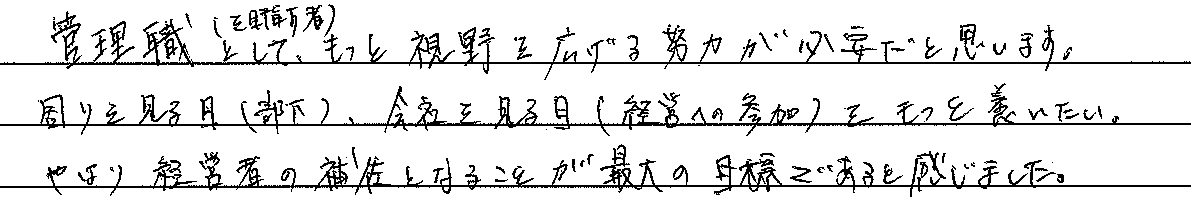 管理職(現職者)として、もっと視野を広げる努力が必要だと思います。
周りを見る目(部下)、会社を見る目(経営への参加)をもっと養いたい。
やはり経営者の補佐となることが最大の目標であると感じました。